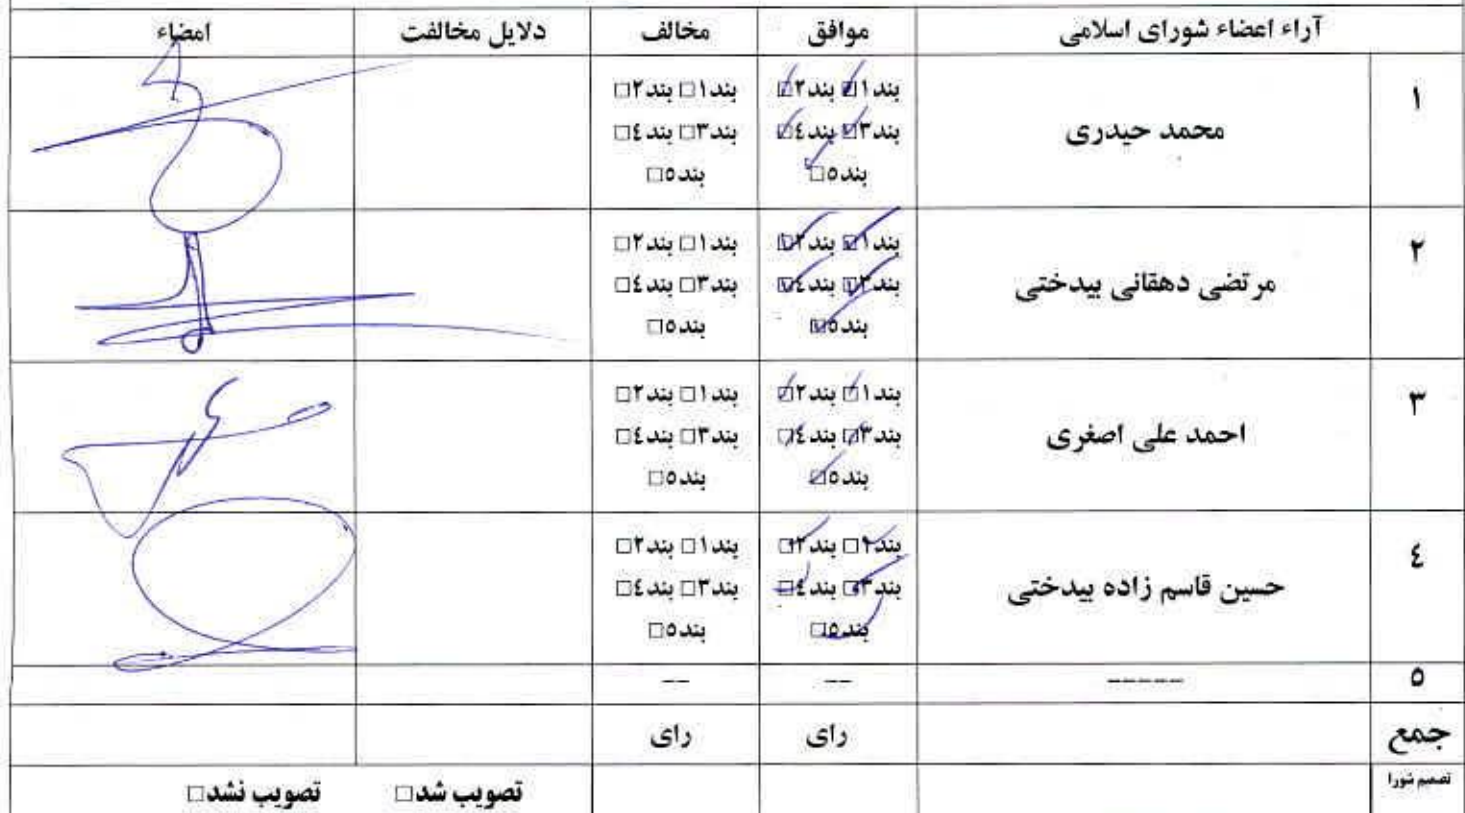 آراء اعضاء شورای اسلامی موافق مخالف دلایل مخالفت امضاء
۱ محمد حیدری
بند۱☑ بند۲☑ بند۱□ بند۲□
بند۳☑ بند٤☑ بند۳□ بند٤□
بند٥☑ بند٥□
۲ مرتضی دهقانی بیدختی
بند۱☑ بند۲☑ بند۱□ بند۲□
بند۳☑ بند٤☑ بند۳□ بند٤□
بند٥☑ بند٥□
۳ احمد علی اصغری
بند۱☑ بند۲☑ بند۱□ بند۲□
بند۳☑ بند٤☑ بند۳□ بند٤□
بند٥☑ بند٥□
٤ حسین قاسم زاده بیدختی
بند۱☑ بند۲☑ بند۱□ بند۲□
بند۳☑ بند٤☑ بند۳□ بند٤□
بند٥☑ بند٥□
٥ ----- -- --
جمع رای رای
تصمیم شورا تصویب شد□ تصویب نشد□